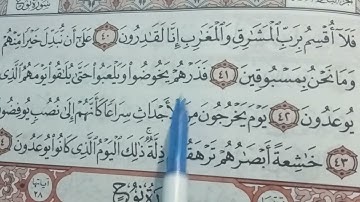 فَلَآ أُقْسِمُ بِرَبِّ ٱلْمَشَٰرِقِ وَٱلْمَغَٰرِبِ إِنَّا لَقَٰدِرُونَ ٤٠ عَلَىٰٓ أَن نُّبَدِّلَ خَيْرًا مِّنْهُمْ
وَمَا نَحْنُ بِمَسْبُوقِينَ ٤١ فَذَرْهُمْ يَخُوضُوا۟ وَيَلْعَبُوا۟ حَتَّىٰ يُلَٰقُوا۟ يَوْمَهُمُ ٱلَّذِى
يُوعَدُونَ ٤٢ يَوْمَ يَخْرُجُونَ مِنَ ٱلْأَجْدَاثِ سِرَاعًا كَأَنَّهُمْ إِلَىٰ نُصُبٍ يُوفِضُونَ
٤٣ خَٰشِعَةً أَبْصَٰرُهُمْ تَرْهَقُهُمْ ذِلَّةٌ ۚ ذَٰلِكَ ٱلْيَوْمُ ٱلَّذِى كَانُوا۟ يُوعَدُونَ
آياتها ٢٨
نُوحٍ